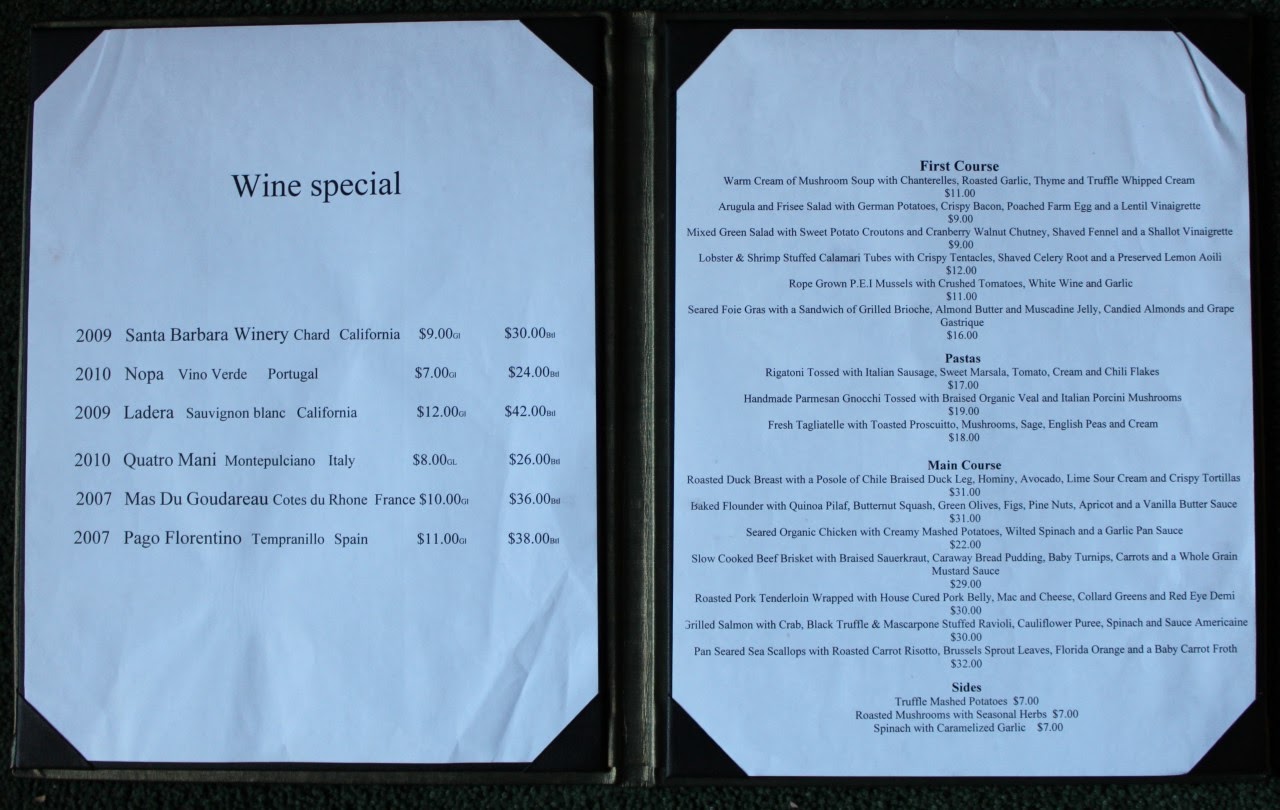 Wine special
2009 Santa Barbara Winery Chard California $9.00Gl $30.00Btl
2010 Nopa Vino Verde Portugal $7.00Gl $24.00Btl
2009 Ladera Sauvignon blanc California $12.00Gl $42.00Btl
2010 Quatro Mani Montepulciano Italy $8.00GL $26.00Btl
2007 Mas Du Goudareau Cotes du Rhone France $10.00Gl $36.00Btl
2007 Pago Florentino Tempranillo Spain $11.00Gl $38.00Btl
First Course
Warm Cream of Mushroom Soup with Chanterelles, Roasted Garlic, Thyme and Truffle Whipped Cream
$11.00
Arugula and Frisee Salad with German Potatoes, Crispy Bacon, Poached Farm Egg and a Lentil Vinaigrette
$9.00
Mixed Green Salad with Sweet Potato Croutons and Cranberry Walnut Chutney, Shaved Fennel and a Shallot Vinaigrette
$9.00
Lobster & Shrimp Stuffed Calamari Tubes with Crispy Tentacles, Shaved Celery Root and a Preserved Lemon Aoili
$12.00
Rope Grown P.E.I Mussels with Crushed Tomatoes, White Wine and Garlic
$11.00
Seared Foie Gras with a Sandwich of Grilled Brioche, Almond Butter and Muscadine Jelly, Candied Almonds and Grape
Gastrique
$16.00
Pastas
Rigatoni Tossed with Italian Sausage, Sweet Marsala, Tomato, Cream and Chili Flakes
$17.00
Handmade Parmesan Gnocchi Tossed with Braised Organic Veal and Italian Porcini Mushrooms
$19.00
Fresh Tagliatelle with Toasted Proscuitto, Mushrooms, Sage, English Peas and Cream
$18.00
Main Course
Roasted Duck Breast with a Posole of Chile Braised Duck Leg, Hominy, Avocado, Lime Sour Cream and Crispy Tortillas
$31.00
Baked Flounder with Quinoa Pilaf, Butternut Squash, Green Olives, Figs, Pine Nuts, Apricot and a Vanilla Butter Sauce
$31.00
Seared Organic Chicken with Creamy Mashed Potatoes, Wilted Spinach and a Garlic Pan Sauce
$22.00
Slow Cooked Beef Brisket with Braised Sauerkraut, Caraway Bread Pudding, Baby Turnips, Carrots and a Whole Grain
Mustard Sauce
$29.00
Roasted Pork Tenderloin Wrapped with House Cured Pork Belly, Mac and Cheese, Collard Greens and Red Eye Demi
$30.00
Grilled Salmon with Crab, Black Truffle & Mascarpone Stuffed Ravioli, Cauliflower Puree, Spinach and Sauce Americaine
$30.00
Pan Seared Sea Scallops with Roasted Carrot Risotto, Brussels Sprout Leaves, Florida Orange and a Baby Carrot Froth
$32.00
Sides
Truffle Mashed Potatoes $7.00
Roasted Mushrooms with Seasonal Herbs $7.00
Spinach with Caramelized Garlic $7.00